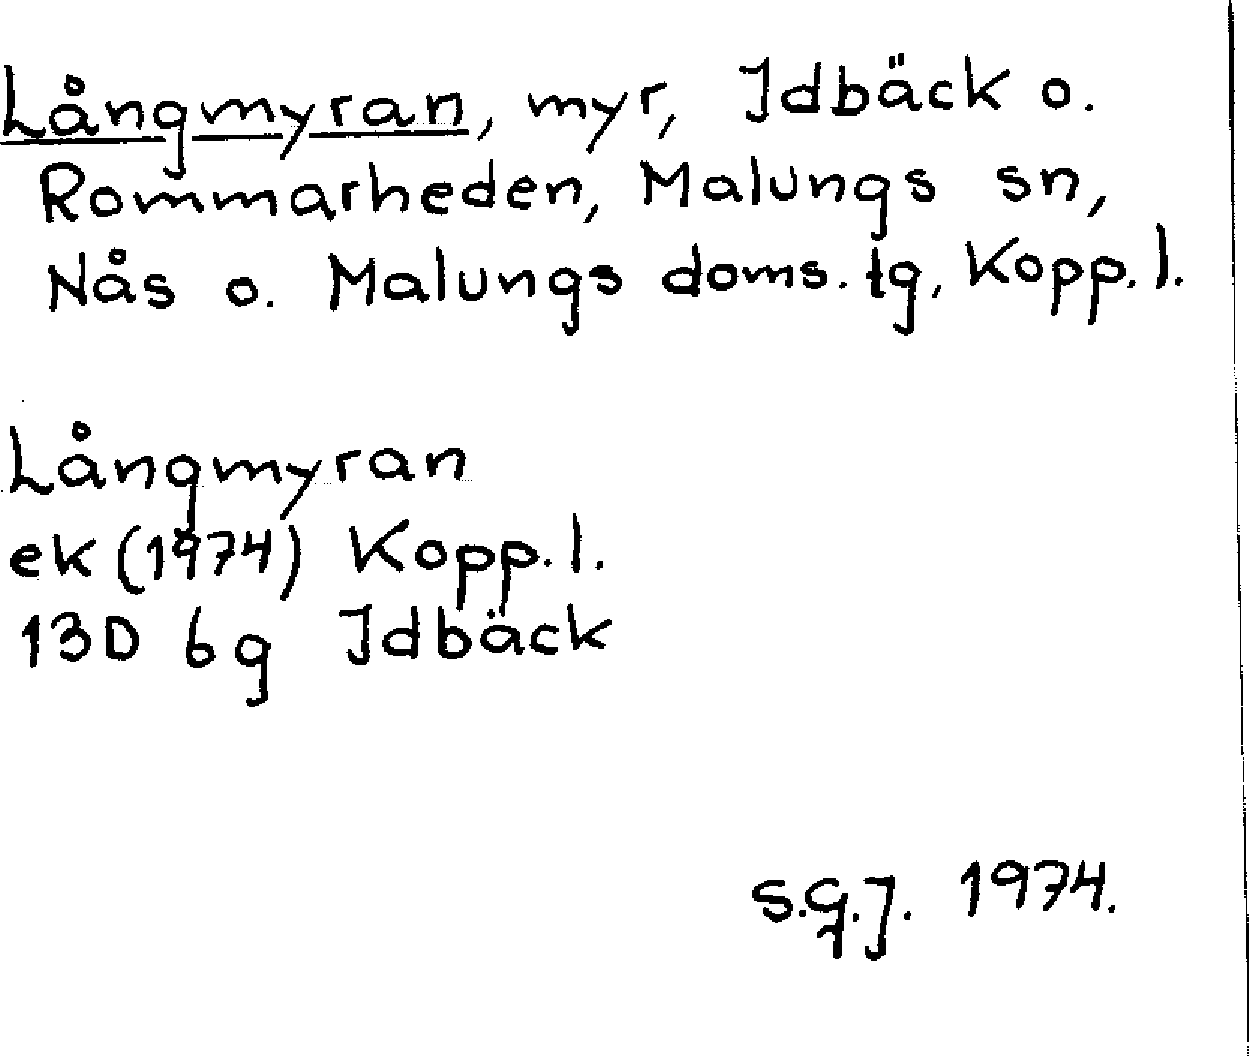 Långmyran, myr, Idbäck o.
Rommarheden, Malungs sn,
Nås o. Malungs doms. tg, Kopp. l.
Långmyran
ek (1974) Kopp. l.
13D 6g Idbäck
S.G.J. 1974.